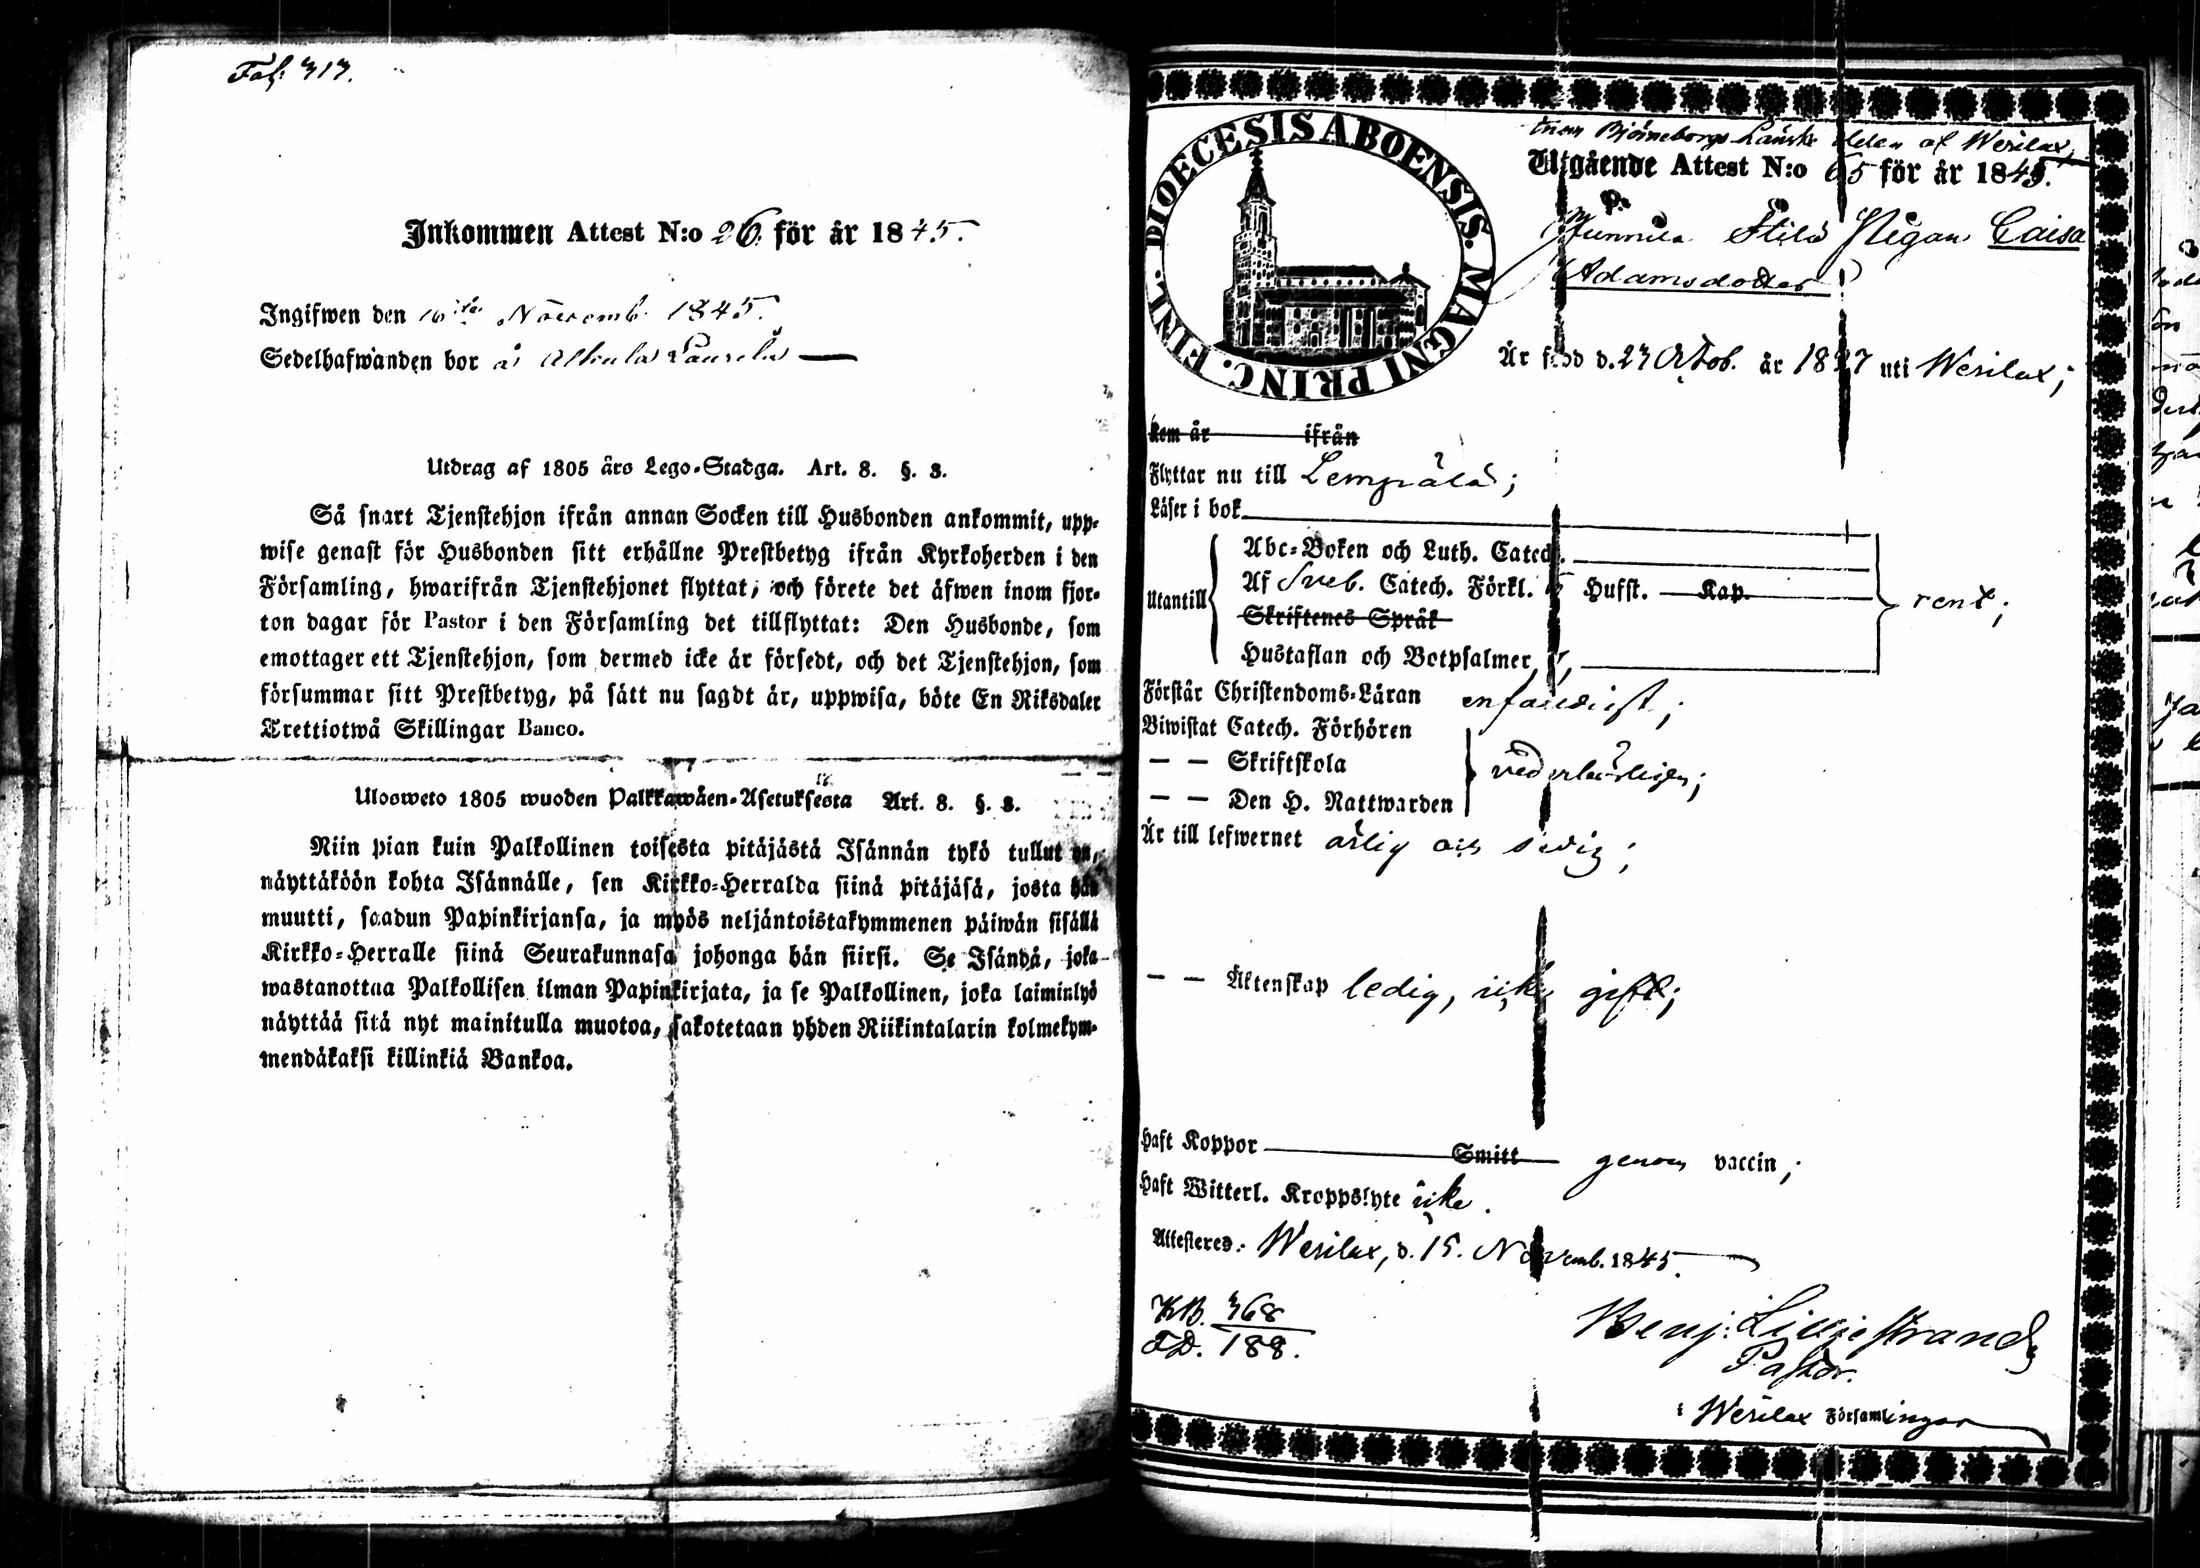 Fol: 313.
Inkommen Attest N:o 26. för år 1845.
Ingifwen den 16 de Novemb. 1845.
Sedelhafwanden bor å Alkula Laurila
Utdrag af 1805 års Lego-Stadga. Art. 8. §. 3.
Så snart Tjenstehjon ifrån annan Socken till Husbonden ankommit, upp-
wise genast för Husbonden sitt erhållne Prestbetyg ifrån Kyrkoherden i den
Församling, hwarifrån Tjenstehjonet flyttat, och förete det äfwen inom fjor-
ton dagar för Pastor i den Församling det tillflyttat: Den Husbonde, som
emottager ett Tjenstehjon, som dermed icke är försedt, och det Tjenstehjon, som
försummar sitt Prestbetyg, på sätt nu sagdt är, uppwisa, böte En Riksdaler
Trettiotwå Skillingar Banco.
Ulosweto 1805 wuoden Palkkawäen-Asetuksesta Art. 8. §. 3.
Niin pian kuin Palkollinen toisesta pitäjästä Isännän tykö tullut on,
näyttäköön kohta Isännälle, sen Kirkko-Herralda siinä pitäjäsä, josta hän
muutti, saadun Papinkirjansa, ja myös neljäntoistakymmenen päiwän sisällä
Kirkko-Herralle siinä Seurakunnasa johonga hän siirsi. Se Isändä, joka
wastanottaa Palkollisen ilman Papinkirjata, ja se Palkollinen, joka laiminlyö
näyttää sitä nyt mainitulla muotoa, sakotetaan yhden Riikintalarin kolmekym-
mendäkaksi killinkiä Bankoa.
DIOECESIS ABOENSIS. MAGNI PRINC. FINL.
inom Björneborgs Länske delen af Wesilax,
Utgående Attest N:o 65 för år 1845.
P. Stilä Pigan Caisa
(Adamsdotter)
Är född d. 23 Octob. år 1827 uti Wesilax;
Kom år ifrån
Flyttar nu till Lempälä;
Läser i bok
Abc-Boken och Luth. Catech.
Utantill Af Sveb. Catech. Förkl. 5 Hufst. Kap. rent;
Skriftenes Språk
Hustaflan och Botpsalmer
Förstår Christendoms-Läran enfaldigt;
Biwistat Catech. Förhören
— — Skriftskola vederbörligen;
— — Den H. Nattwarden
Är till lefwernet ärlig och sedig;
— — Äktenskap ledig, icke gift;
Haft Koppor Smitt genom vaccin;
Haft Witterl. Kroppslyte icke.
Attesteres: Wesilax, d. 15. Novemb. 1845.
KB. 368
FD. 188.
Benj: Liljestrand,
Pastor.
i Wesilax Församlingar